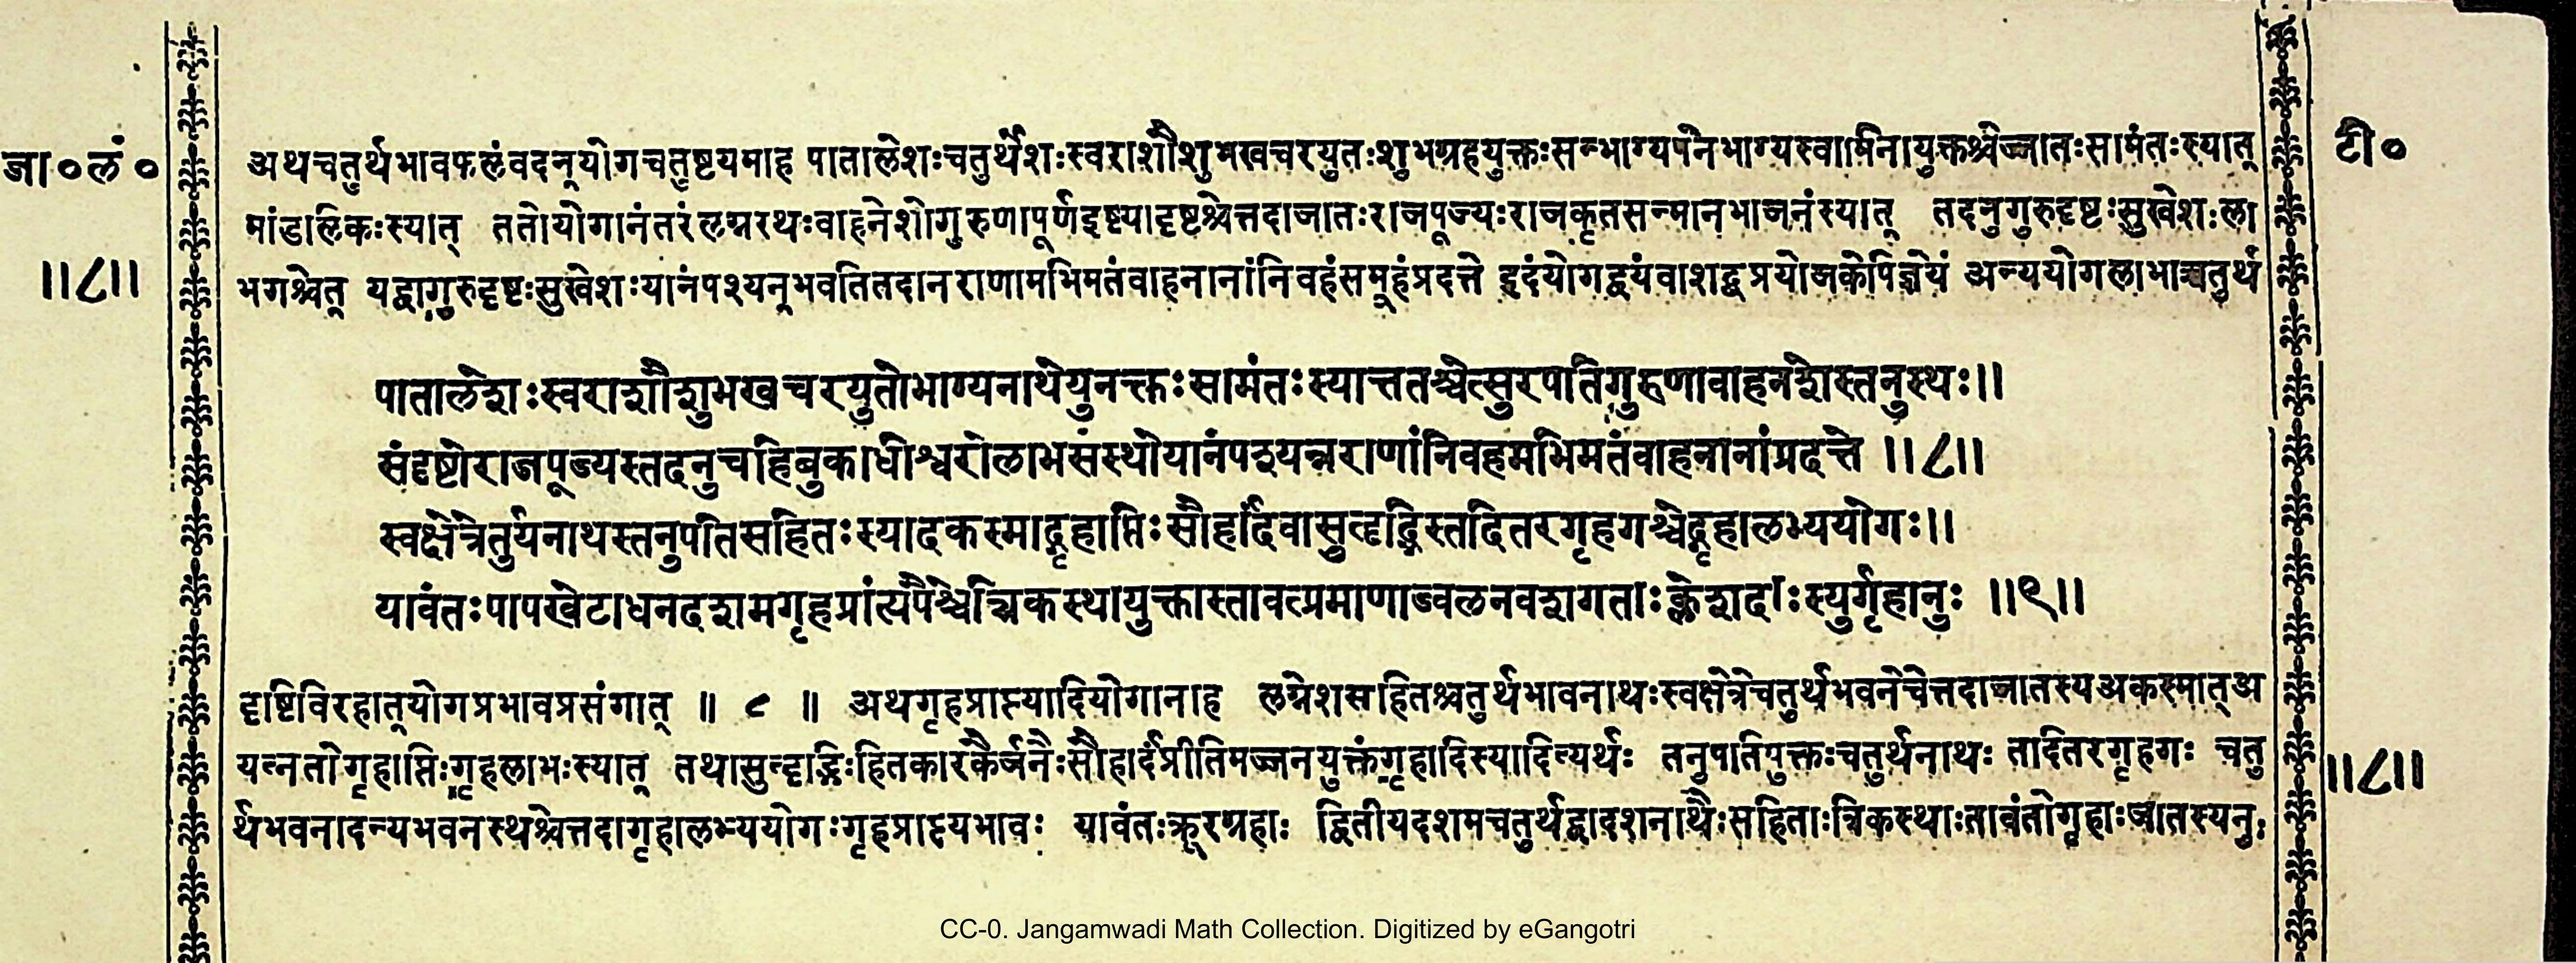 जा०लं०
॥८॥
अथचतुर्थभावफलंवदन्योगचतुष्टयमाह पातालेशःचतुर्थेशःस्वराशौशुभखचरयुतःशुभग्रहयुक्तःसन्भाग्यपेनभाग्यस्वामिनायुक्तश्चेज्जातःसामंतःस्यात्
मांडलिकःस्यात् ततोयोगानंतरंलग्नस्थःवाहनेशोगुरुणापूर्णदृष्ट्यादृष्टश्चेत्तदाजातःराजपूज्यःराजकृतसन्मानभाजनंस्यात् तदनुगुरुदृष्टःसुखेशःला
भगश्चेत् यद्वागुरुदृष्टःसुखेशःयानंपश्यन्भवतितदानराणामभिमतंवाहनानांनिवहंसमूहंप्रदत्ते इदंयोगद्वयंवाशद्बप्रयोजकोपिज्ञेयं अन्ययोगलाभाच्चतुर्थ
पातालेशःस्वराशौशुभखचरयुतोभाग्यनाथेयुनक्तःसामंतःस्यात्ततश्चेत्सुरपतिगुरुणावाहनेशस्तनुस्थः॥
संदृष्टोराजपूज्यस्तदनुचहिबुकाधीश्वरोलाभसंस्थोयानंपश्यन्नराणांनिवहमभिमतंवाहनानांप्रदत्ते ॥८॥
स्वक्षेत्रेतुर्यनाथस्तनुपतिसहितःस्यादकस्माद्गृहाप्तिःसौहार्दवासुहृद्भिस्तदितरगृहगश्चेद्गृहालभ्ययोगः॥
यावंतःपापखेटाधनदशमगृहप्रांत्यपैश्चेत्त्रिकस्थायुक्तास्तावत्प्रमाणाज्वलनवशगताःक्लेशदाःस्युर्गृहानुः ॥९॥
दृष्टिविरहात्योगप्रभावप्रसंगात् ॥ ८ ॥ अथगृहप्राप्त्यादियोगानाह लग्नेशसहितश्चतुर्थभावनाथःस्वक्षेत्रेचतुर्थभवनेचेत्तदाजातस्यअकस्मात्अ
यत्नतोगृहाप्तिःगृहलाभःस्यात् तथासुहृद्भिःहितकारकैर्जनैःसौहार्दंप्रीतिमज्जनयुक्तंगृहादिस्यादित्यर्थः तनुपतियुक्तःचतुर्थनाथः तदितरगृहगः चतु
र्थभवनादन्यभवनस्थश्चेत्तदागृहालभ्ययोगःगृहप्राप्त्यभावः यावंतःक्रूरग्रहाः द्वितीयदशमचतुर्थद्वादशनाथैःसहिताःत्रिकस्थाःतावंतोगृहाःजातस्यनुः
टी०
॥८॥
CC-0. Jangamwadi Math Collection. Digitized by eGangotri